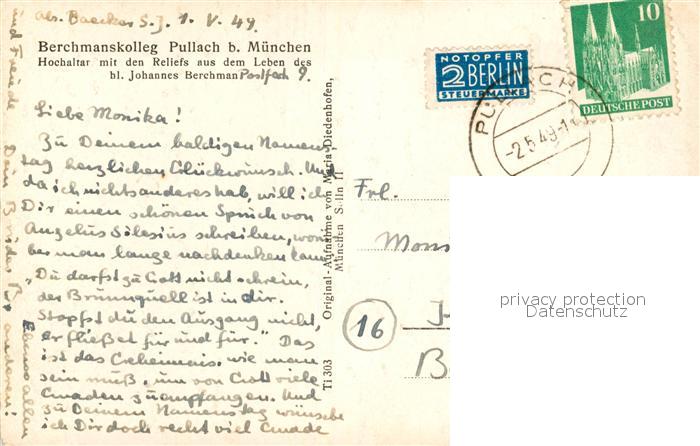 abs. Baecker S.J. 1. V. 49.
Berchmanskolleg Pullach b. München
Hochaltar mit den Reliefs aus dem Leben des
hl. Johannes Berchman Postfach 9.
Liebe Monika!
Zu Deinem baldigen Namens
tag herzlichen Glückwunsch. Und
da ich nichts anderes hab, will ich
Dir einen schönen Spruch von
Angelus Silesius schreiben, worü
ber man lange nachdenken kann
"Du darfst zu Gott nicht schrein,
der Brunnquell ist in dir.
Stopfst du den Ausgang nicht,
er fließet für und für." Das
ist das Geheimnis, wie man
sein muß, um von Gott viele
Gnaden zu empfangen. Und
zu Deinem Namenstag wünsche
ich Dir doch recht viel Gnade
und Freude
Dein Bruder
Ebenso allen
anderen!
Ti 303
Original-Aufnahme von Maria Diedenhofen,
München Solln II
NOTOPFER
2 BERLIN
STEUERMARKE
10
DEUTSCHE POST
PULLACH
-2.5.49-1
Frl.
Moni
16
privacy protection
Datenschutz